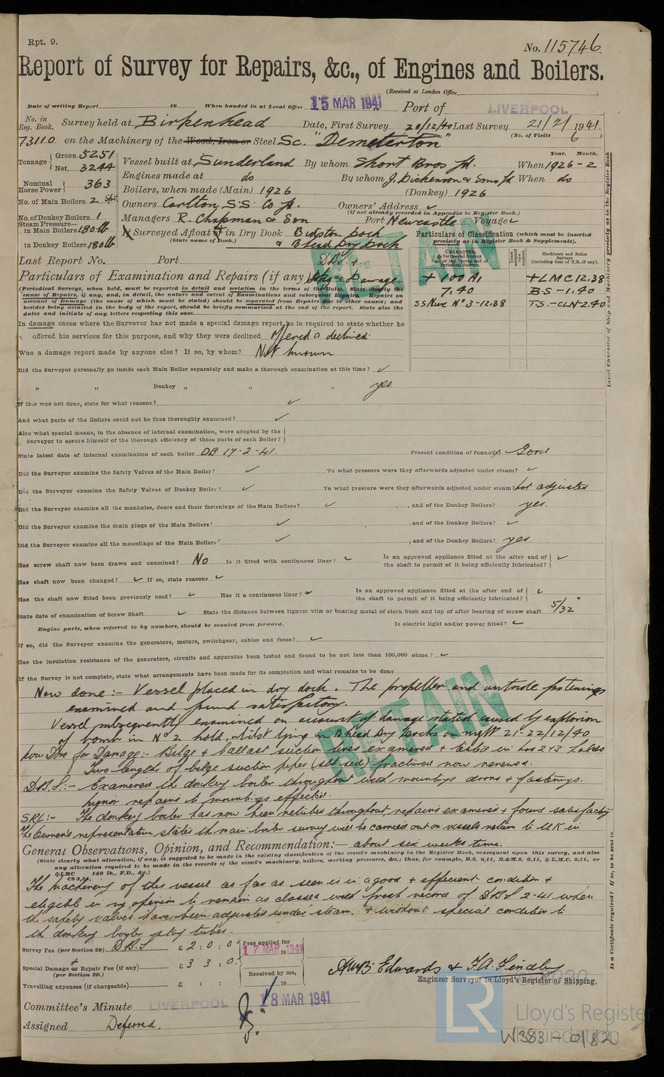 Rpt. 9.
No. 115746
Report of Survey for Repairs, &c., of Engines and Boilers.
(Received at London Office
Date of writing Report 19 When handed in at Local Office 15 MAR 1941 Port of LIVERPOOL
No. in Reg. Book. Survey held at Birkenhead Date, First Survey 20/12/40 Last Survey 21/2/1941
(No. of Visits 6)
73110 on the Machinery of the Wood, Iron or Steel Sc. "Demeterton"
Tonnage Gross 5251 Net 3244 Vessel built at Sunderland By whom Short Bros Ld. When 1926-2
Year. Month.
Nominal Horse Power 363 Engines made at do By whom J. Dickinson & Sons Ld When do
No. of Main Boilers 2 Boilers, when made (Main) 1926 (Donkey) 1926
No. of Donkey Boilers 1 Owners Carlton S.S. Co Ld. Owners' Address
(If not already recorded in Appendix to Register Book.)
Steam Pressure in Main Boilers 180 lb Managers R. Chapman & Son Port Newcastle Voyage
in Donkey Boilers 180 lb Surveyed Afloat & in Dry Dock Bidston Dock & B'head Dry Dock
(State name of Dock.)
Particulars of Classification (which must be inserted precisely as in Register Book & Supplements).
Last Report No. Port
Particulars of Examination and Repairs (if any) DBS & Damage
+ 100 A1 + LMC 12.38
7.40 B.S - 1.40
SS Nwc No 3 - 12.38 T.S - CLN 2.40
RETAIN
In damage cases where the Surveyor has not made a special damage report, he is required to state whether he offered his services for this purpose, and why they were declined Offered & declined
Was a damage report made by anyone else? If so, by whom? Not known
Did the Surveyor personally go inside each Main Boiler separately and make a thorough examination at this time?
" " Donkey " " " yes
If this was not done, state for what reasons?
And what parts of the Boilers could not be thus thoroughly examined?
Also what special means, in the absence of internal examination, were adopted by the Surveyor to assure himself of the thorough efficiency of those parts of each Boiler?
State latest date of internal examination of each boiler DB 17-2-41 Present condition of funnel(s) Good
Did the Surveyor examine the Safety Valves of the Main Boiler? To what pressure were they afterwards adjusted under steam?
Did the Surveyor examine the Safety Valves of Donkey Boiler? To what pressure were they afterwards adjusted under steam? not adjusted
Did the Surveyor examine all the manholes, doors and their fastenings of the Main Boilers? , and of the Donkey Boiler? yes.
Did the Surveyor examine the drain plugs of the Main Boilers? , and of the Donkey Boiler?
Did the Surveyor examine all the mountings of the Main Boilers? , and of the Donkey Boiler? yes.
Has screw shaft now been drawn and examined? No Is it fitted with continuous liner? Is an approved appliance fitted at the after end of the shaft to permit of it being efficiently lubricated?
Has shaft now been changed? If so, state reasons
Has the shaft now fitted been previously used? Has it a continuous liner? Is an approved appliance fitted at the after end of the shaft to permit of it being efficiently lubricated?
State date of examination of Screw Shaft State the distance between lignum vitæ or bearing metal of stern bush and top of after bearing of screw shaft 5/32"
Engine parts, when referred to by numbers, should be counted from forward. Is electric light and/or power fitted?
If so, did the Surveyor examine the generators, motors, switchgear, cables and fuses?
Has the insulation resistance of the generators, circuits and apparatus been tested and found to be not less than 100,000 ohms?
If the Survey is not complete, state what arrangements have been made for its completion and what remains to be done
Now done :- Vessel placed in dry dock. The propeller and outside fastenings
examined and found satisfactory.
Vessel subsequently examined on account of damage stated caused by explosion
of bomb in No 2 hold, whilst lying B'head Dry Docks on night 21-22/12/40
Now Done for Damage :- Bilge & ballast suction lines examined & tested in Nos 2 & 3 holds
Two lengths of bilge suction pipe fractured now renewed.
D.B.S :- Examined the donkey boiler throughout with mountings doors & fastenings.
minor repairs to mountings effected.
SRL :- The donkey boiler has now been retubed throughout, repairs examined & found satisfactory
The Owners representative states the main boiler survey will be carried out on vessels return to U.K in
about six weeks time.
General Observations, Opinion, and Recommendation :—
(State clearly what alteration, if any, is suggested to be made in the existing classification of the vessel's machinery in the Register Book, consequent upon this survey, and also
The machinery of this vessel as far as seen is in a good & efficient condition &
eligible in my opinion to remain as classed with fresh record of DBS 2-41 when
the safety valves have been adjusted under steam. & without special condition to
the donkey boiler stay tubes.
Survey Fee (per Section 29) DBS £ 2 : 0 : 0 Fees applied for 17 MAR 1941
Special Damage or Repair Fee (if any) £ 3 3 : 0 Received by me,
(per Section 29.)
Travelling expenses (if chargeable) £ : :
Edwards & F.A. Findlay
Engineer Surveyor to Lloyd's Register of Shipping.
Committee's Minute LIVERPOOL 18 MAR 1941
Assigned Deferred.
LR
Lloyd's Register
Foundation
W383-0182